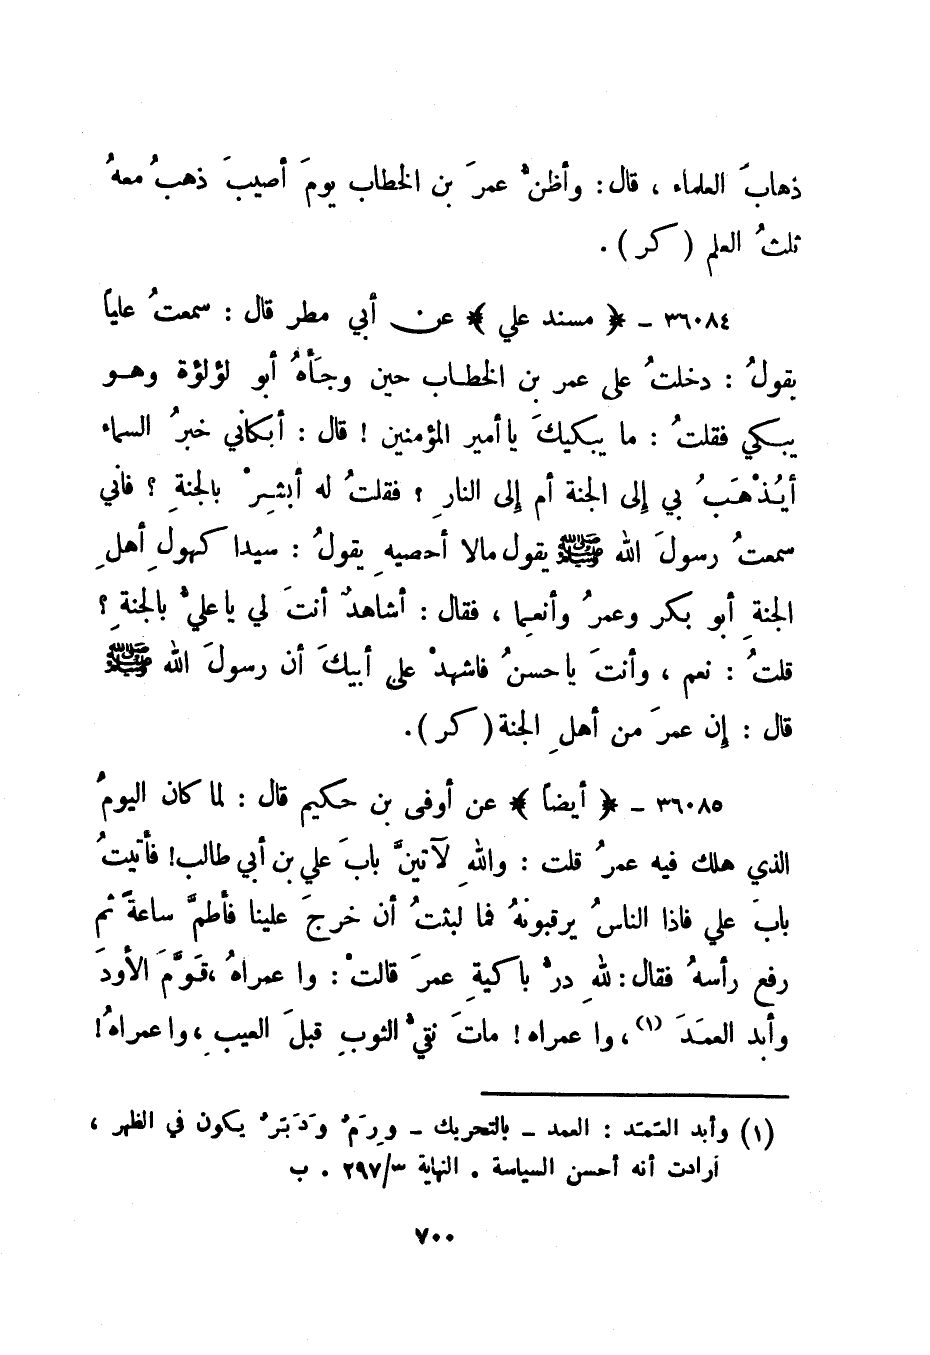 ذهابَ العلماء ، قال : وأظنُّ عمرَ بن الخطاب يومَ أصيبَ ذهبُ معهُ
ثلثُ العلم ( كر ) .
٣٦٠٨٤ ـ ﴿ مسند علي ﴾ عن أبي مطر قال : سمعتُ علياً
يقولُ : دخلتُ على عمر بن الخطاب حين وجَأَهُ أبو لؤلؤة وهو
يبكي فقلتُ : ما يبكيكَ يا أمير المؤمنين ! قال : أبكاني خبرُ السماء
أيُذْهَبُ بي إلى الجنة أم إلى النارِ ؟ فقلتُ له أبشِرْ بالجنةِ ؟ فاني
سمعتُ رسولَ الله ﷺ يقول مالا أحصيهِ يقولُ : سيدا كهولِ أهلِ
الجنةِ أبو بكر وعمرُ وأنعِما ، فقال : أشاهدٌ أنتَ لي يا عليُّ بالجنةِ ؟
قلتُ : نعم ، وأنتَ يا حسنُ فاشهدْ على أبيكَ أن رسولَ الله ﷺ
قال : إن عمرَ من أهلِ الجنة ( كر ) .
٣٦٠٨٥ ـ ﴿ أيضاً ﴾ عن أوفى بن حكيم قال : لما كان اليومُ
الذي هلك فيه عمرُ قلت : واللهِ لآتينَّ بابَ علي بن أبي طالب ! فأتيتُ
بابَ علي فاذا الناسُ يرقبونهُ فما لبثتُ أن خرجَ علينا فأطمَّ ساعةً ثم
رفع رأسهُ فقال : للهِ درُّ باكيةِ عمرَ قالتْ : وا عمراهُ ، قَوَّمَ الأودَ
وأبد العمَدَ (١) ، وا عمراه ! ماتَ نقيُّ الثوبِ قبلَ العيبِ ، وا عمراهُ !
(١) وأبد العَمَد : العمد ـ بالتحريك ـ ورَمٌ ودَبَرٌ يكون في الظهر ،
أرادت أنه أحسن السياسة . النهاية ٢٩٧/٣ . ب
٧٠٠